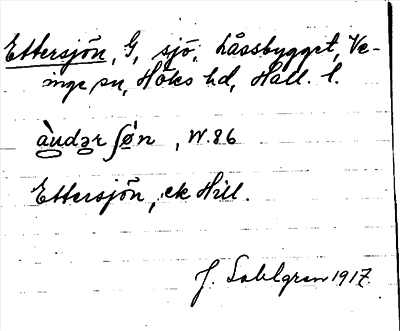 Ettersjön, G, sjö, Låssbygget, Ve-
inge sn, Höks hd, Hall. l.
, W. 86
Ettersjön, ek Hill.
J. Sahlgren 1917